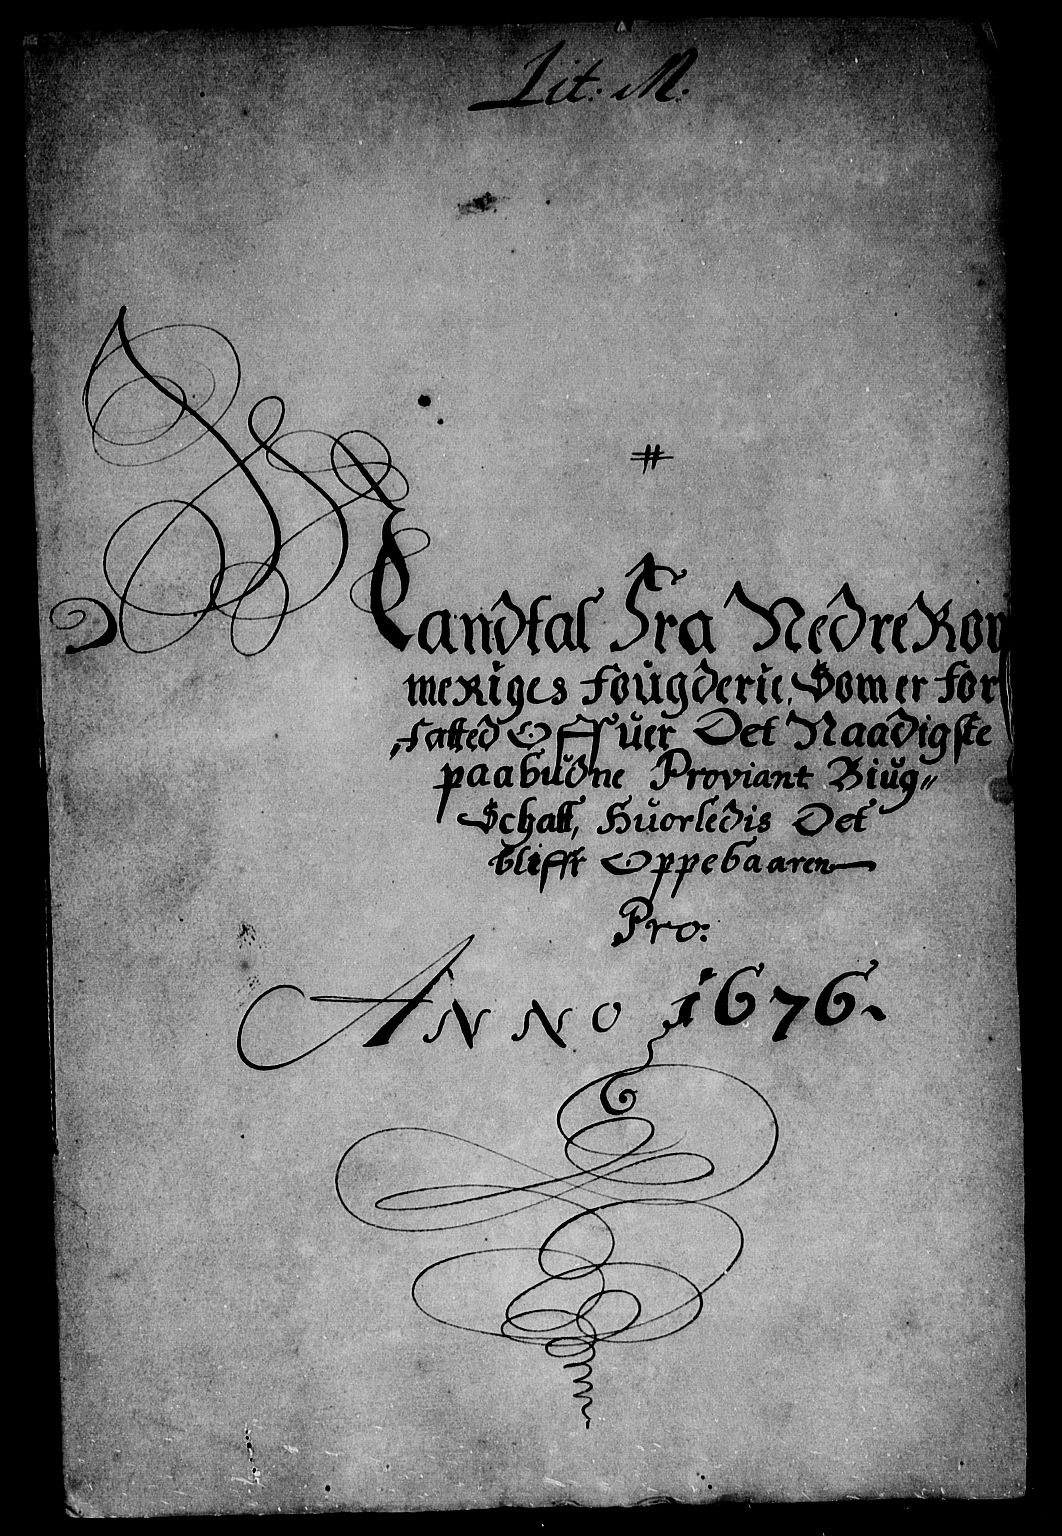 Lit: M.
#
Mandtal Fra Nedre Rom
meriges fougderie, Som er for
fatted Offuer Det Naadigste
paabudne Proviant Biug〃
Schatt, Huorledis Det
bliffr Oppebaaren
Pro:
ANNO 1676.